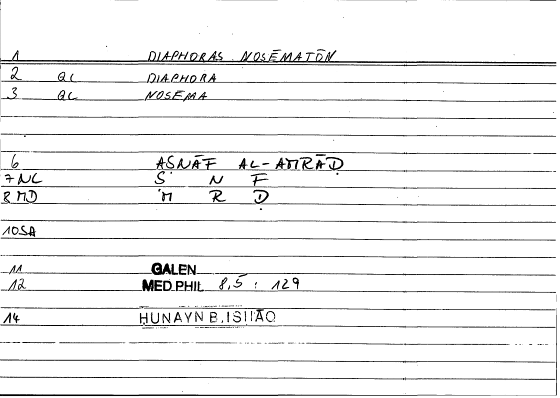 1 DIAPHORAS NOSĒMATŌN
2 QL DIAPHORA
3 QL NOSEMA
6 AṢNĀF AL-AMRĀḌ
7 NC Ṣ N F
8 MD M R Ḍ
10 SA
11 GALEN
12 MED PHIL 8,5 : 129
14 ḤUNAYN B. ISḤĀQ